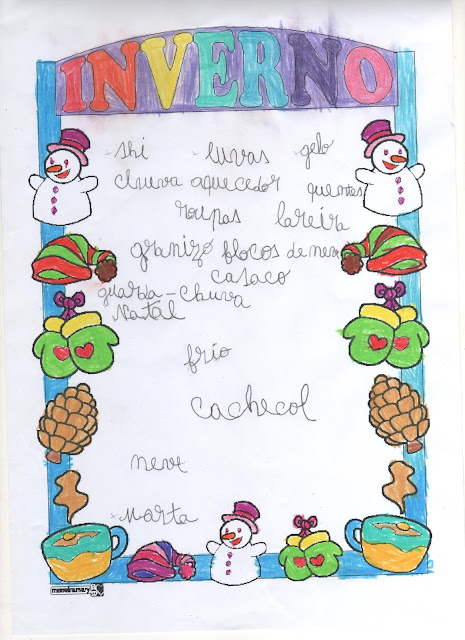 INVERNO
-shi -luvas -gelo
chuva aquecedor quentes
roupas lareira
granizo flocos de neve
casaco
guarda-chuva
Natal
frio
cachecol
neve
-Marta